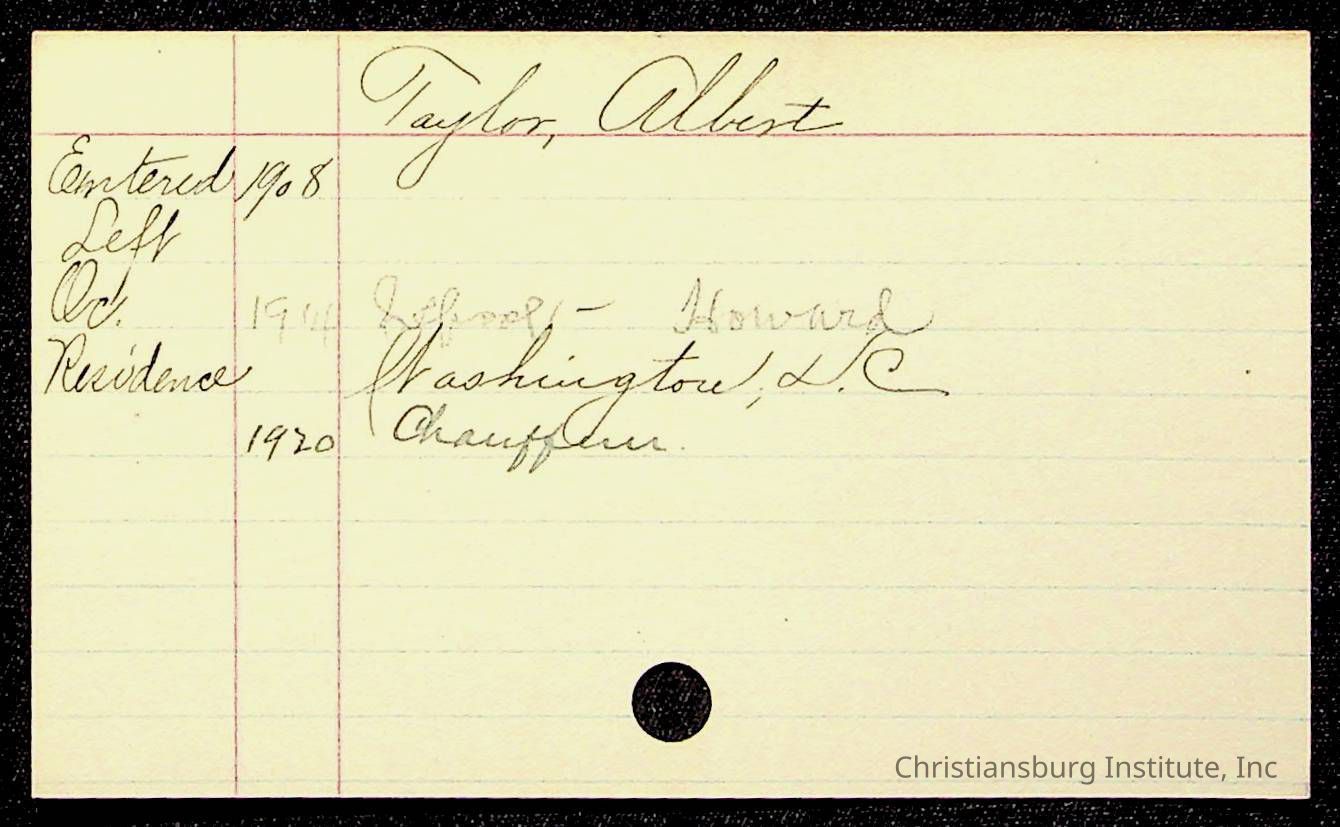 Taylor, Albert
Entered 1908
Left
Oc. School - Howard
Residence Washington, D.C
1920 Chauffeur.
Christiansburg Institute, Inc